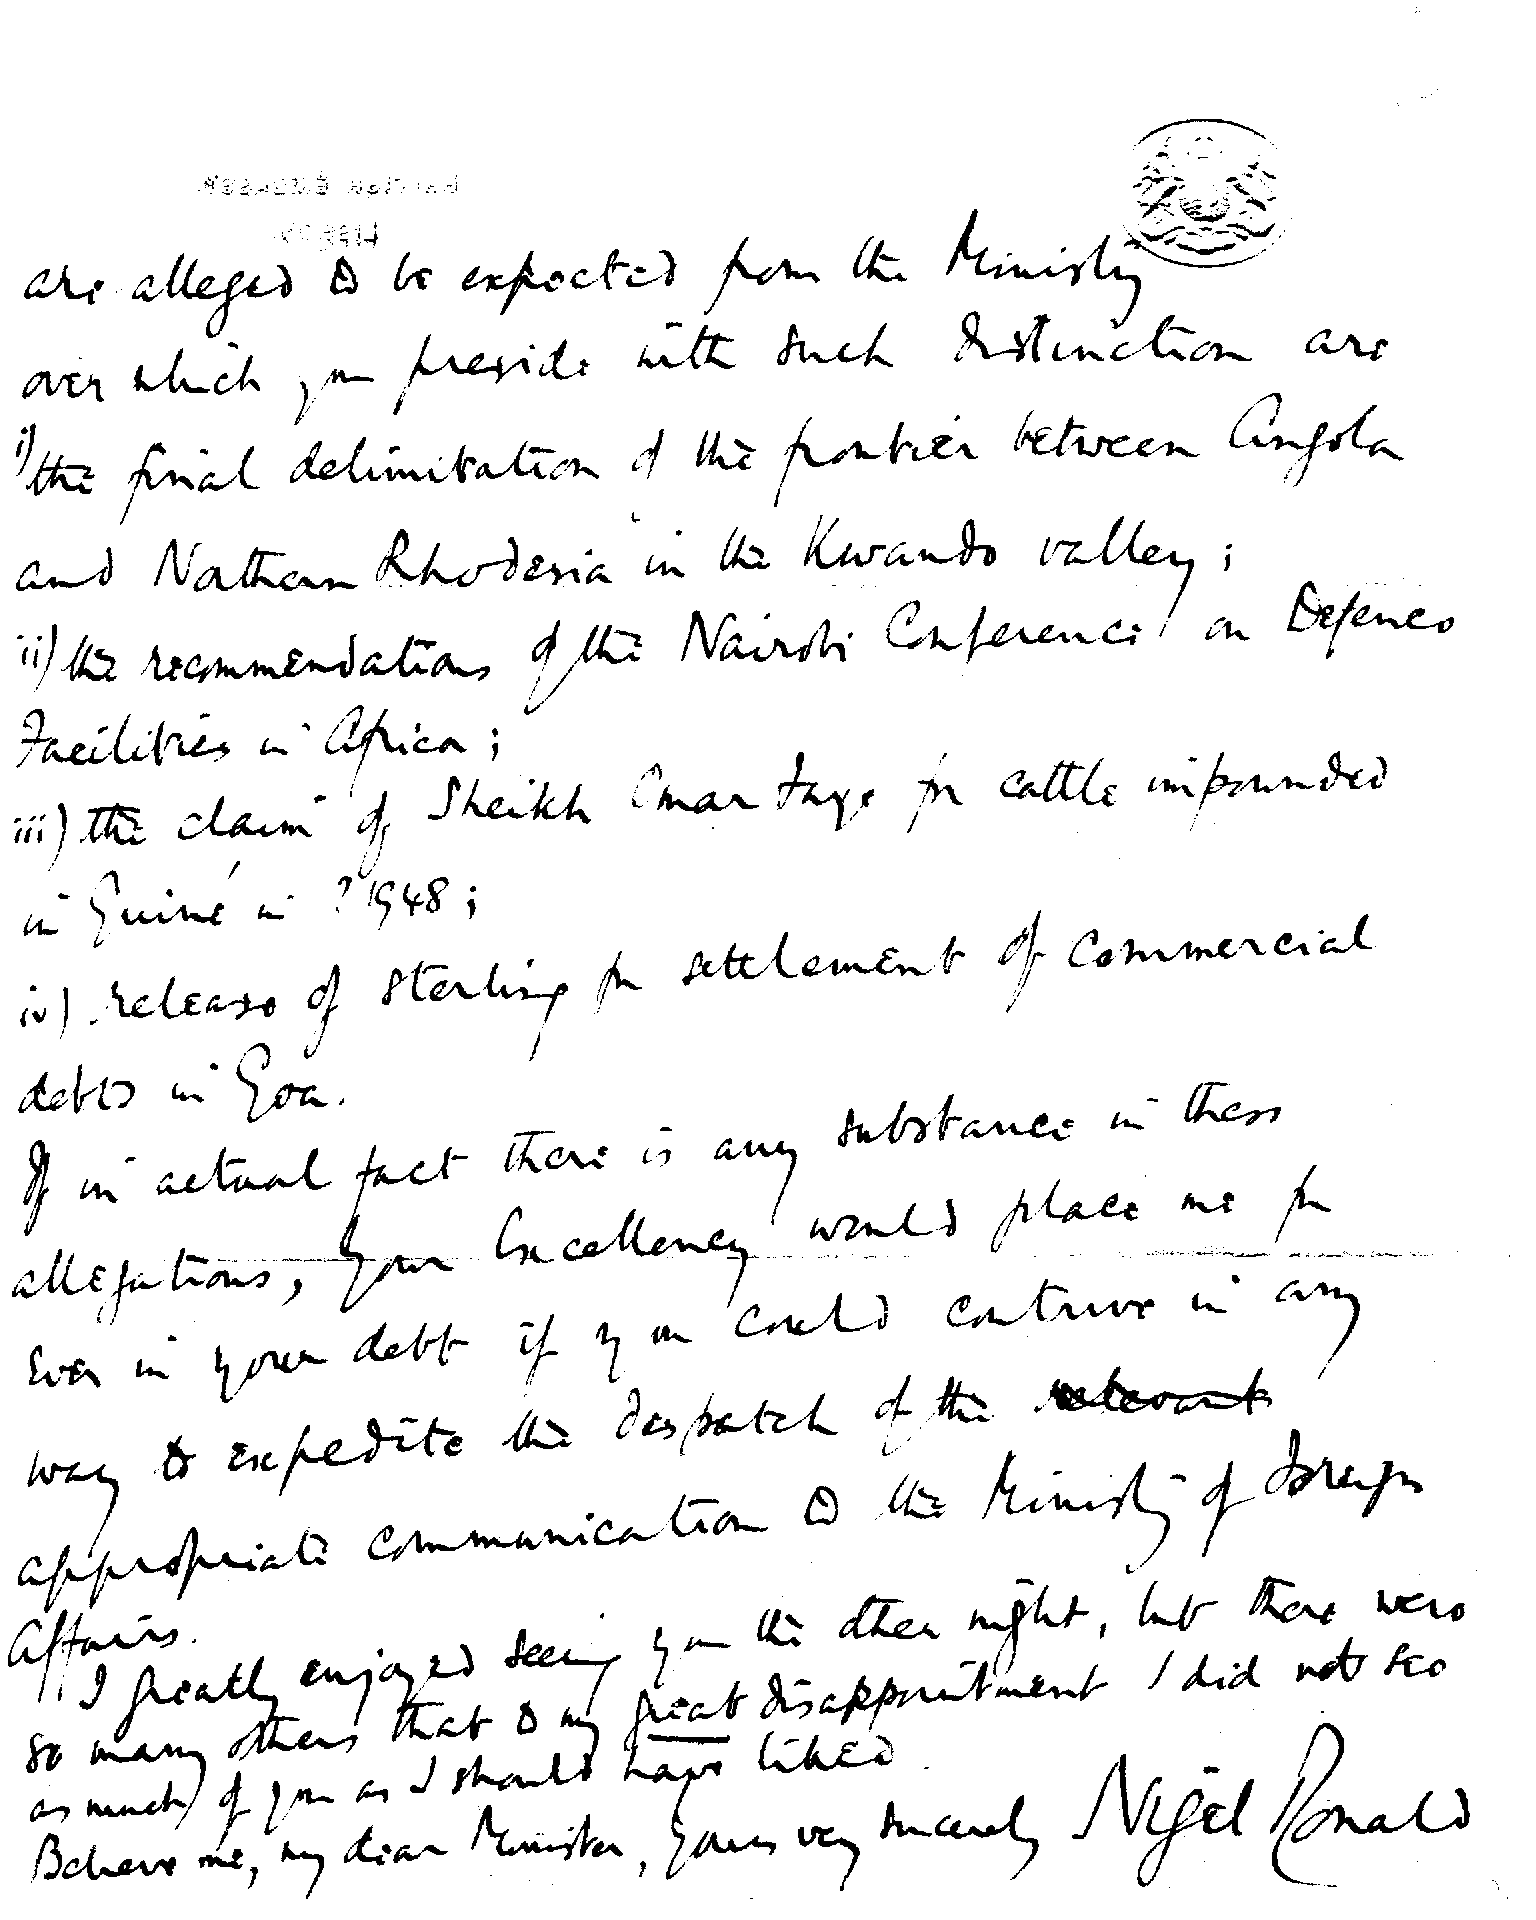 BRITISH EMBASSY
LISBON
are alleged to be expected from the Ministry
over which you preside with such distinction are
i) the final delimitation of the frontier between Angola
and Northern Rhodesia in the Kwando valley;
ii) the recommendations of the Nairobi Conference on Defence
Facilities in Africa;
iii) the claim of Sheikh Omar Faye for cattle impounded
in Guiné in ? 1948;
iv) release of sterling for settlement of commercial
debts in Goa.
If in actual fact there is any substance in these
allegations, Your Excellency would place me for
ever in your debt if you could contrive in any
way to expedite the despatch of the relevant
appropriate communication to the Ministry of Foreign
Affairs.
I greatly enjoyed seeing you the other night, but there were
so many others that to my great disappointment I did not see
as much of you as I should have liked.
Believe me, my dear Minister, Yours very sincerely Nigel Ronald